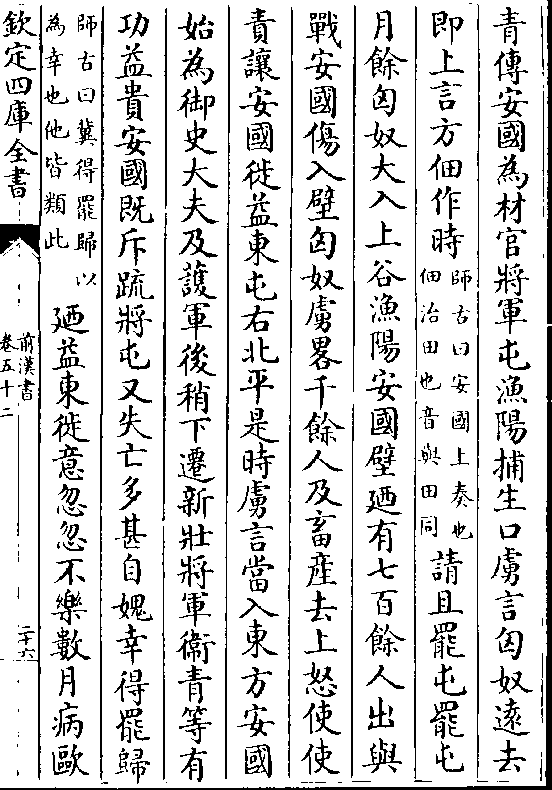 青傳安國為材官將軍屯漁陽捕生口虜言匈奴逺去
即上言方佃作時師古曰安國上奏也佃治田也音與田同請且罷屯罷屯
月餘匈奴大入上谷漁陽安國壁廼有七百餘人出與
戰安國傷入壁匈奴虜畧千餘人及畜産去上怒使使
責讓安國徙益東屯右北平是時虜言當入東方安國
始為御史大夫及䕶軍後稍下遷新壯將軍衞青等有
功益貴安國既斥疏將屯又失亡多甚自媿幸得罷歸
師古曰冀得罷歸以為幸也他皆類此廼益東徙意忽忽不樂數月病歐
欽定四庫全書
前漢書
卷五十二
二十六